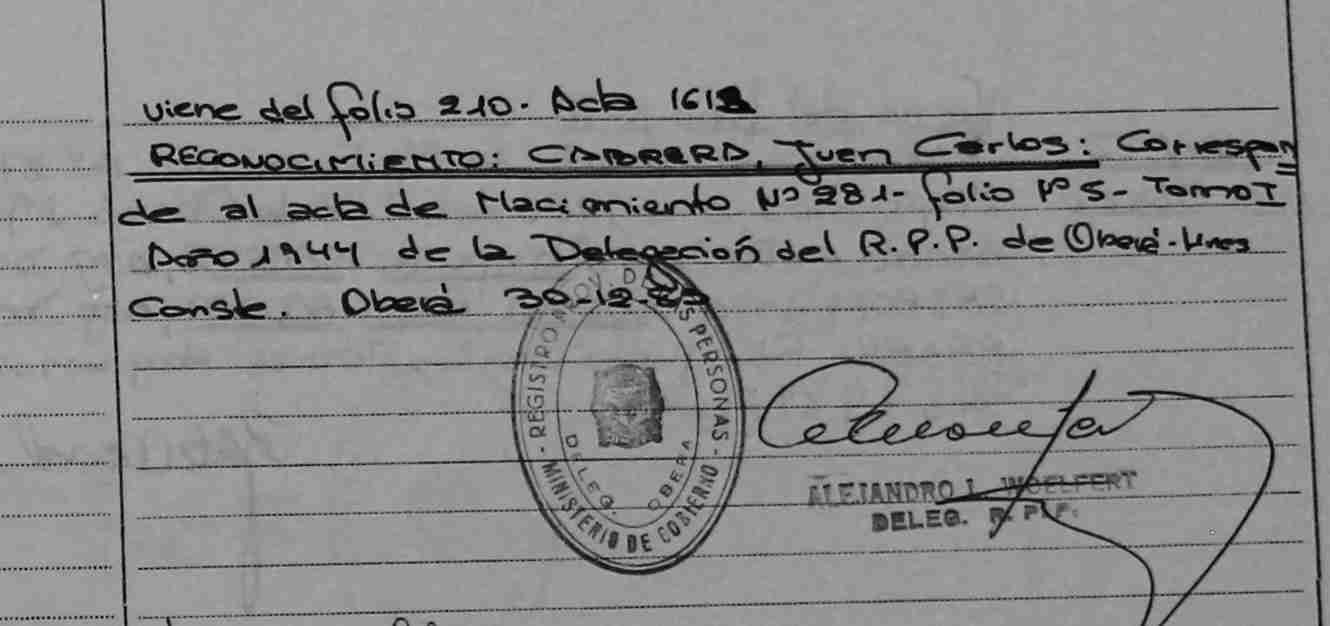 viene del folio 210. Acta 161
RECONOCIMIENTO: CABRERA, Juan Carlos: Correspon
de al acta de Nacimiento Nº 281- folio Nº 5- Tomo I
Año 1944 de la Delegación del R.P.P. de Oberá-Mnes
Conste. Oberá 30-12-
REGISTRO PROV. DE LAS PERSONAS
DELEG. OBERA
MINISTERIO DE GOBIERNO
ALEJANDRO L. WOELFERT
DELEG. R. P. P.